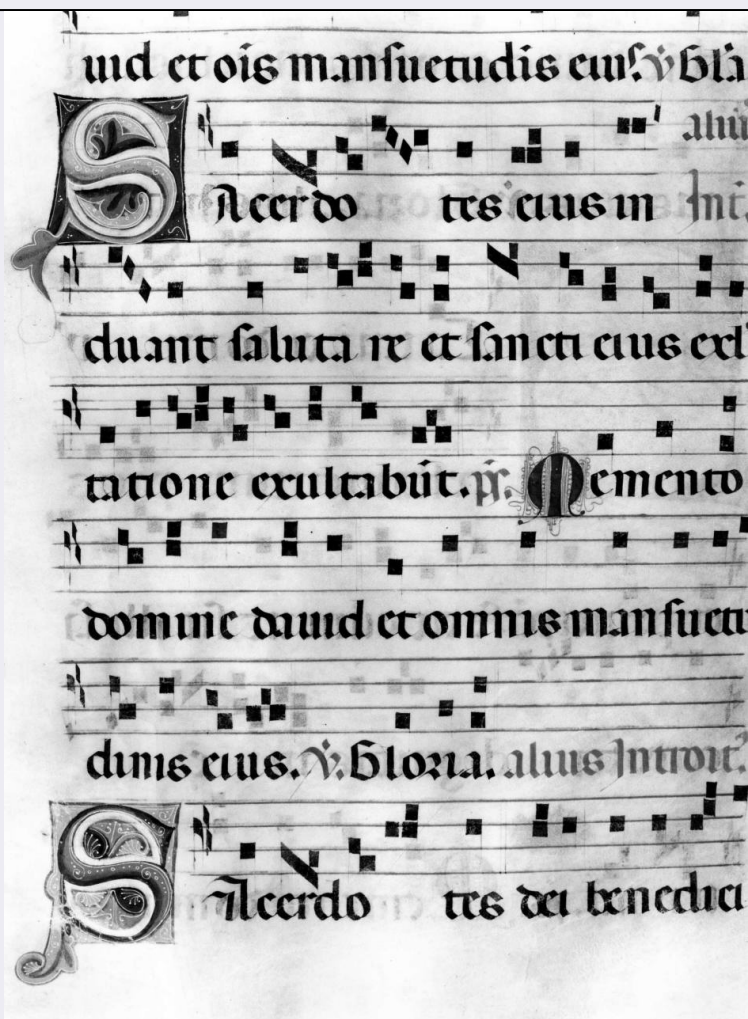 uid et oīs mansuetudis eius. ℣ Gl̄a
aliu
SAcerdotes eius in Int
duant salutare et sancti eius exl
tatione exultabūt. p̄s. Memento
domine dauid et omnis mansuetu
dinis eius. ℣. Gloria. alius Introit?
SAcerdotes dei benedici